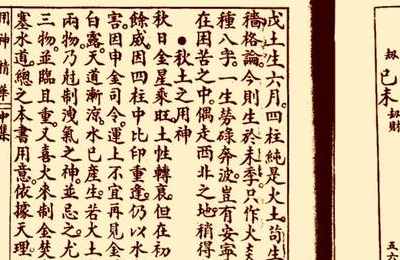 劫 己未 劫財
五六
戊土生六月。四柱純是火土。苟生
穡格論。今則生於未季。只作火炎
種八字。一生勞碌奔波。豈有安寧
在困苦之中。偶走西北之地。稍得
●秋土之用神
秋日金星乘旺。土性轉衰。但在初
餘威。因四柱中比印重逢。仍以水
害。因申金司令。運上不宜再見金
白露。天道漸涼。水已產生。若火土
兩物。乃尅制洩氣之神。並忌之。尤
三物並臨。且重又喜火來制金焚
塞水道。總之本書用意。依據天理。
用神精華 中集